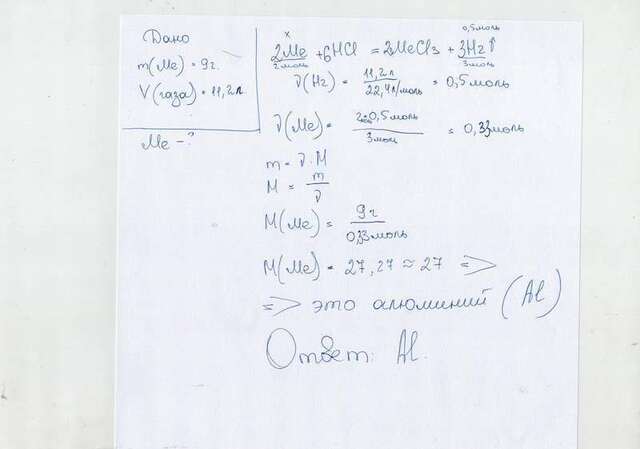 Дано
m(Me) = 9г.
V(газа) = 11,2л
Me - ?
x 0,5моль
2Me + 6HCl = 2MeCl3 + 3H2↑
2моль 3моль
ν(H2) = 11,2л / 22,4л/моль = 0,5моль
ν(Me) = 2·0,5моль / 3моль = 0,33моль
m = ν · M
M = m / ν
M(Me) = 9г / 0,33моль
M(Me) = 27,27 ≈ 27 =>
=> это алюминий (Al)
Ответ: Al.